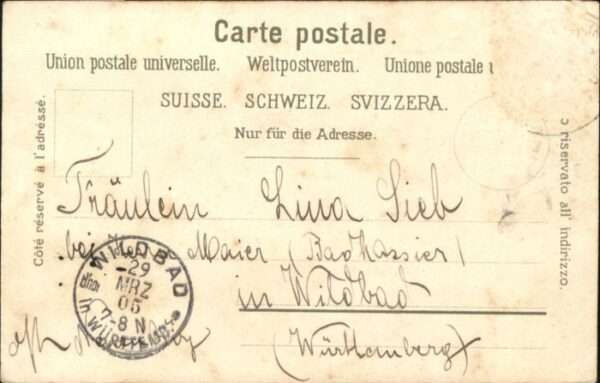 Carte postale.
Union postale universelle. Weltpostverein. Unione postale
SUISSE. SCHWEIZ. SVIZZERA.
Nur für die Adresse.
Côté réservé à l'adresse.
o riservato all' indirizzo.
Fräulein Lina Sieb
bei Maier (Badkassier)
in Wildbad
(Württemberg)
WILDBAD
29
MRZ
05
7-8 N
in WÜRTTEMB.